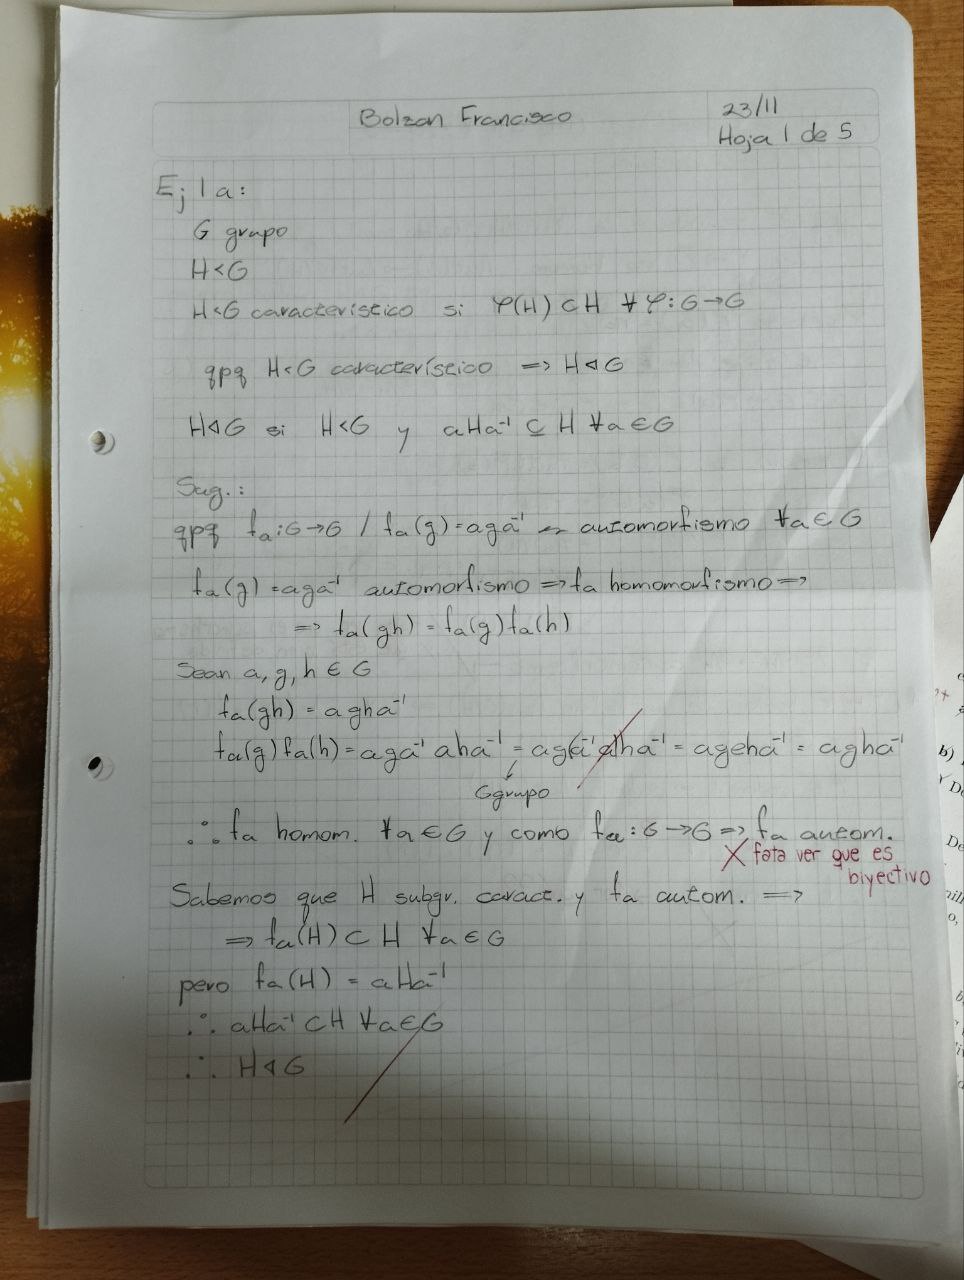 Bolzan Francisco
23/11
Hoja 1 de 5
Ej 1a:
G grupo
H<G
H<G caracteristico si φ(H) ⊂ H ∀ φ: G→G
qpq H<G característico ⇒ H◁G
H◁G si H<G y aHa⁻¹ ⊆ H ∀a ∈ G
Sug.:
qpq fa: G→G / fa(g) = aga⁻¹ ~ automorfismo ∀a ∈ G
fa(g) = aga⁻¹ automorfismo ⇒ fa homomorfismo ⇒
⇒ fa(gh) = fa(g)fa(h)
Sean a, g, h ∈ G
fa(gh) = agha⁻¹
fa(g)fa(h) = aga⁻¹ aha⁻¹ = ag(a⁻¹a)ha⁻¹ = ageha⁻¹ = agha⁻¹
G grupo
∴ fa homom. ∀a ∈ G y como fa: G→G ⇒ fa autom.
X fata ver que es
biyectivo
Sabemos que H subgr. caract. y fa autom. ⇒
⇒ fa(H) ⊂ H ∀a ∈ G
pero fa(H) = aHa⁻¹
∴ aHa⁻¹ ⊂ H ∀a∈G
∴ H◁G
b)
De